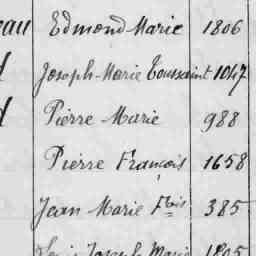 eau Edmond Marie 1806
d Joseph-Marie Toussaint 1047
d Pierre Marie 988
Pierre François 1658
Jean Marie Fois 385
Joseph Marie 1805